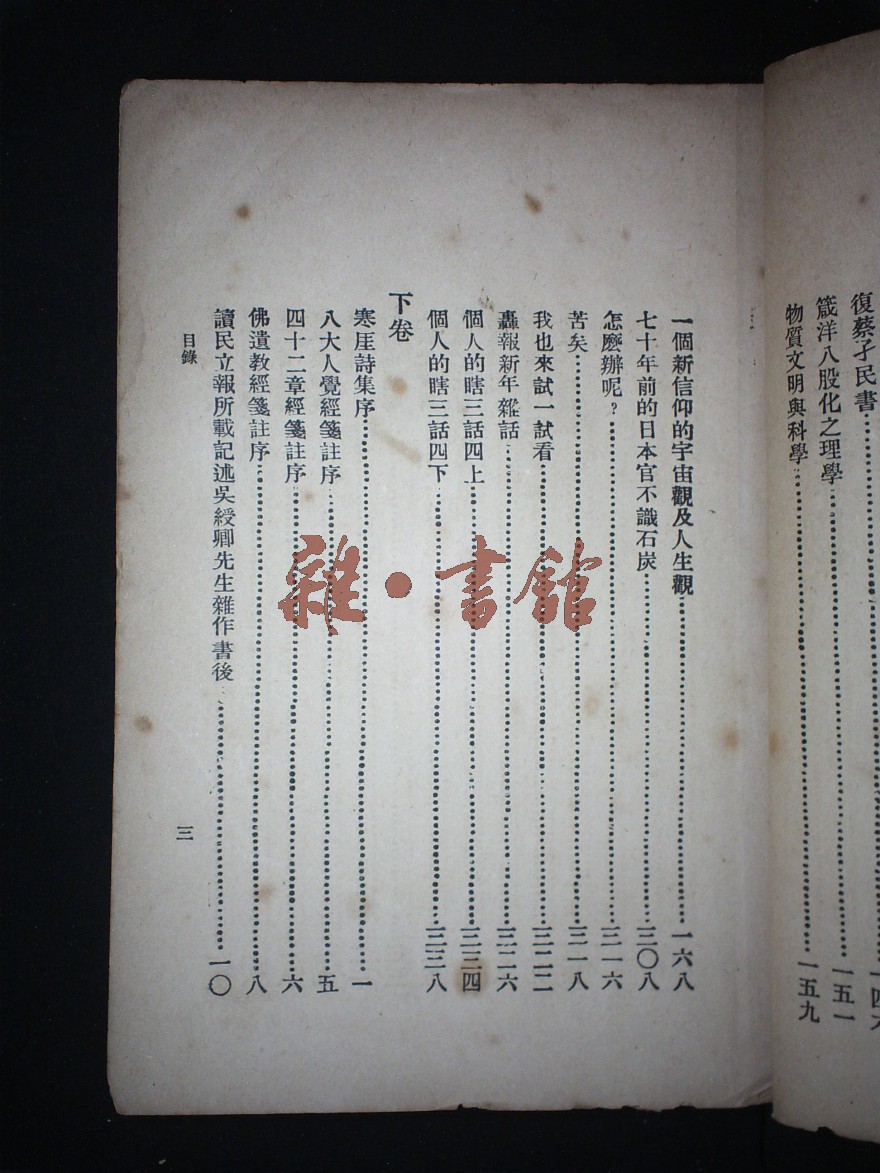 復蔡孑民書
箴洋八股化之理學 一五一
物質文明與科學 一五九
一個新信仰的宇宙觀及人生觀 一六八
七十年前的日本官不識石炭 三〇八
怎麼辦呢? 三一六
苦矣 三一八
我也來試一試看 三二二
轟報新年雜話 三二六
個人的瞎三話四上 三三四
個人的瞎三話四下 三三八
下卷
寒厓詩集序 一
八大人覺經箋註序 五
四十二章經箋註序 六
佛遺教經箋註序 八
讀民立報所載記述吳綬卿先生雜作書後 一〇
目錄
三
雜·書館